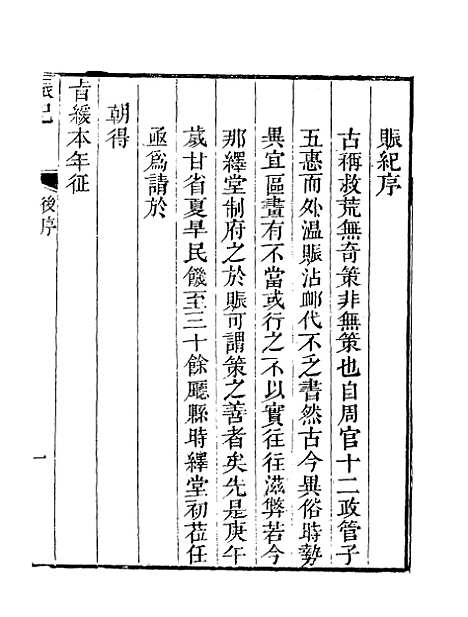 賑紀序
古稱救荒無奇策非無策也自周官十二政管子
五惠而外溫賑沾卹代不乏書然古今異俗時勢
異宜區畫有不當或行之不以實往往滋弊若今
那繹堂制府之於賑可謂策之善者矣先是庚午
歲甘省夏旱民饑至三十餘廳縣時繹堂初莅任
亟爲請於
朝得
旨緩本年征
賑紀
後序
一